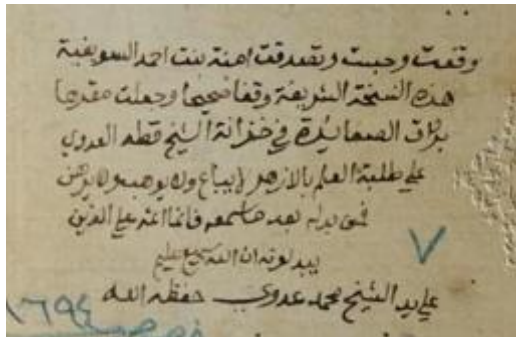 وقفت وحبست وتصدقت امنة بنت احمد السويفية
هذه النسخة الشريفة وقفا صحيحا وجعلت مقرها
برواق الصعائدة في خزانة الشيخ قطه العدوي
علي طلبة العلم بالازهر لا يباع ولا يوهب ولا يرهن
فمن بدله بعد ما سمعه فانما اثمه علي الذين
يبدلونه ان الله سميع عليم
علي يد الشيخ محمد عدوي حفظه الله
٧
١٦٩٤